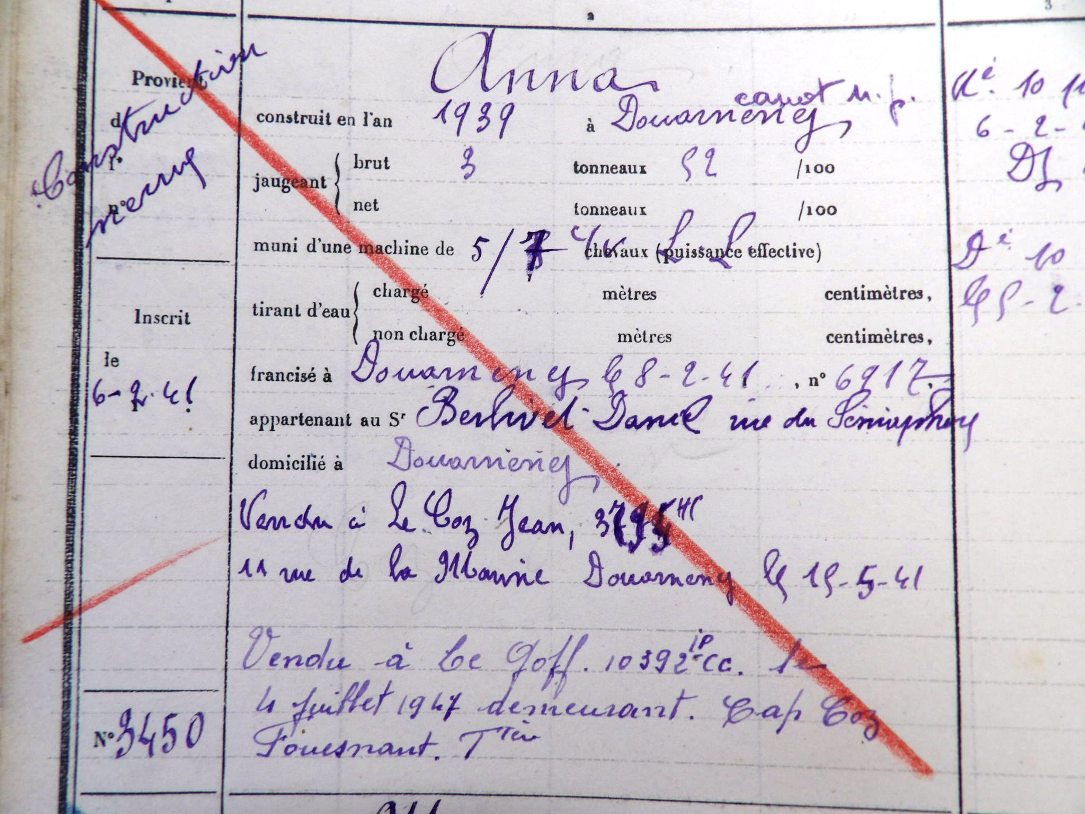 Anna
canot m. p.
construit en l'an 1939 à Douarnenez
jaugeant brut 3 tonneaux 52 /100
net tonneaux /100
muni d'une machine de 5/7 chevaux (puissance effective)
tirant d'eau chargé mètres centimètres,
non chargé mètres centimètres,
francisé à Douarnenez le 8-2-41, n° 6917
appartenant au Sr Daniel rue du Sémaphore
domicilié à Douarnenez
Vendu à Le Coz Jean,
11 rue de la Marine Douarnenez le 15-5-41
Vendu à Le Goff. 10392 IP CC. le
4 juillet 1947 demeurant. Cap Coz
Fouesnant.
Provient
Construction
neuve
Inscrit
le
6-2-41
N° 3450
10
6-2-
DZ
10
5-2-